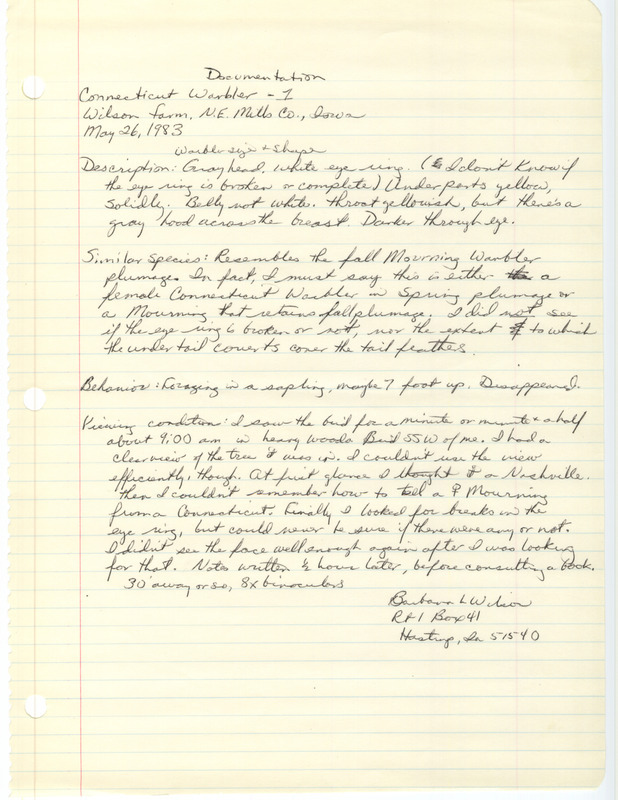 Documentation
Connecticut Warbler - 1
Wilson Farm, N.E. Mills Co., Iowa
May 26, 1983
Warbler size + shape
Description: Gray head, white eye ring. (I don't know if
the eye ring is broken or complete) Underparts yellow,
solidly. Belly not white. throat yellowish, but there's a
gray hood across the breast. Darker through eye.
Similar Species: Resembles the fall Mourning Warbler
plumage. In fact, I must say this is either a
female Connecticut Warbler in Spring plumage or
a Mourning that retains fall plumage. I did not see
if the eye ring is broken or not, nor the extent to which
the under tail coverts cover the tail feathers.
Behavior: Foraging in a sapling, maybe 7 foot up. Disappeared.
Viewing condition: I saw the bird for a minute or minute + a half
about 9:00 am in heavy woods. Bird SSW of me. I had a
clear view of the tree it was in. I couldn't use the view
efficiently, though. At first glance I thought it a Nashville.
then I couldn't remember how to tell a ♀ Mourning
from a Connecticut. Finally I looked for breaks in the
eye ring, but could never be sure if there were any or not.
I didn't see the face well enough again after I was looking
for that. Notes written ½ hour later, before consulting a book.
30' away or so, 8x binoculars
Barbara L Wilson
Rt 1 Box 41
Hastings, Ia 51540